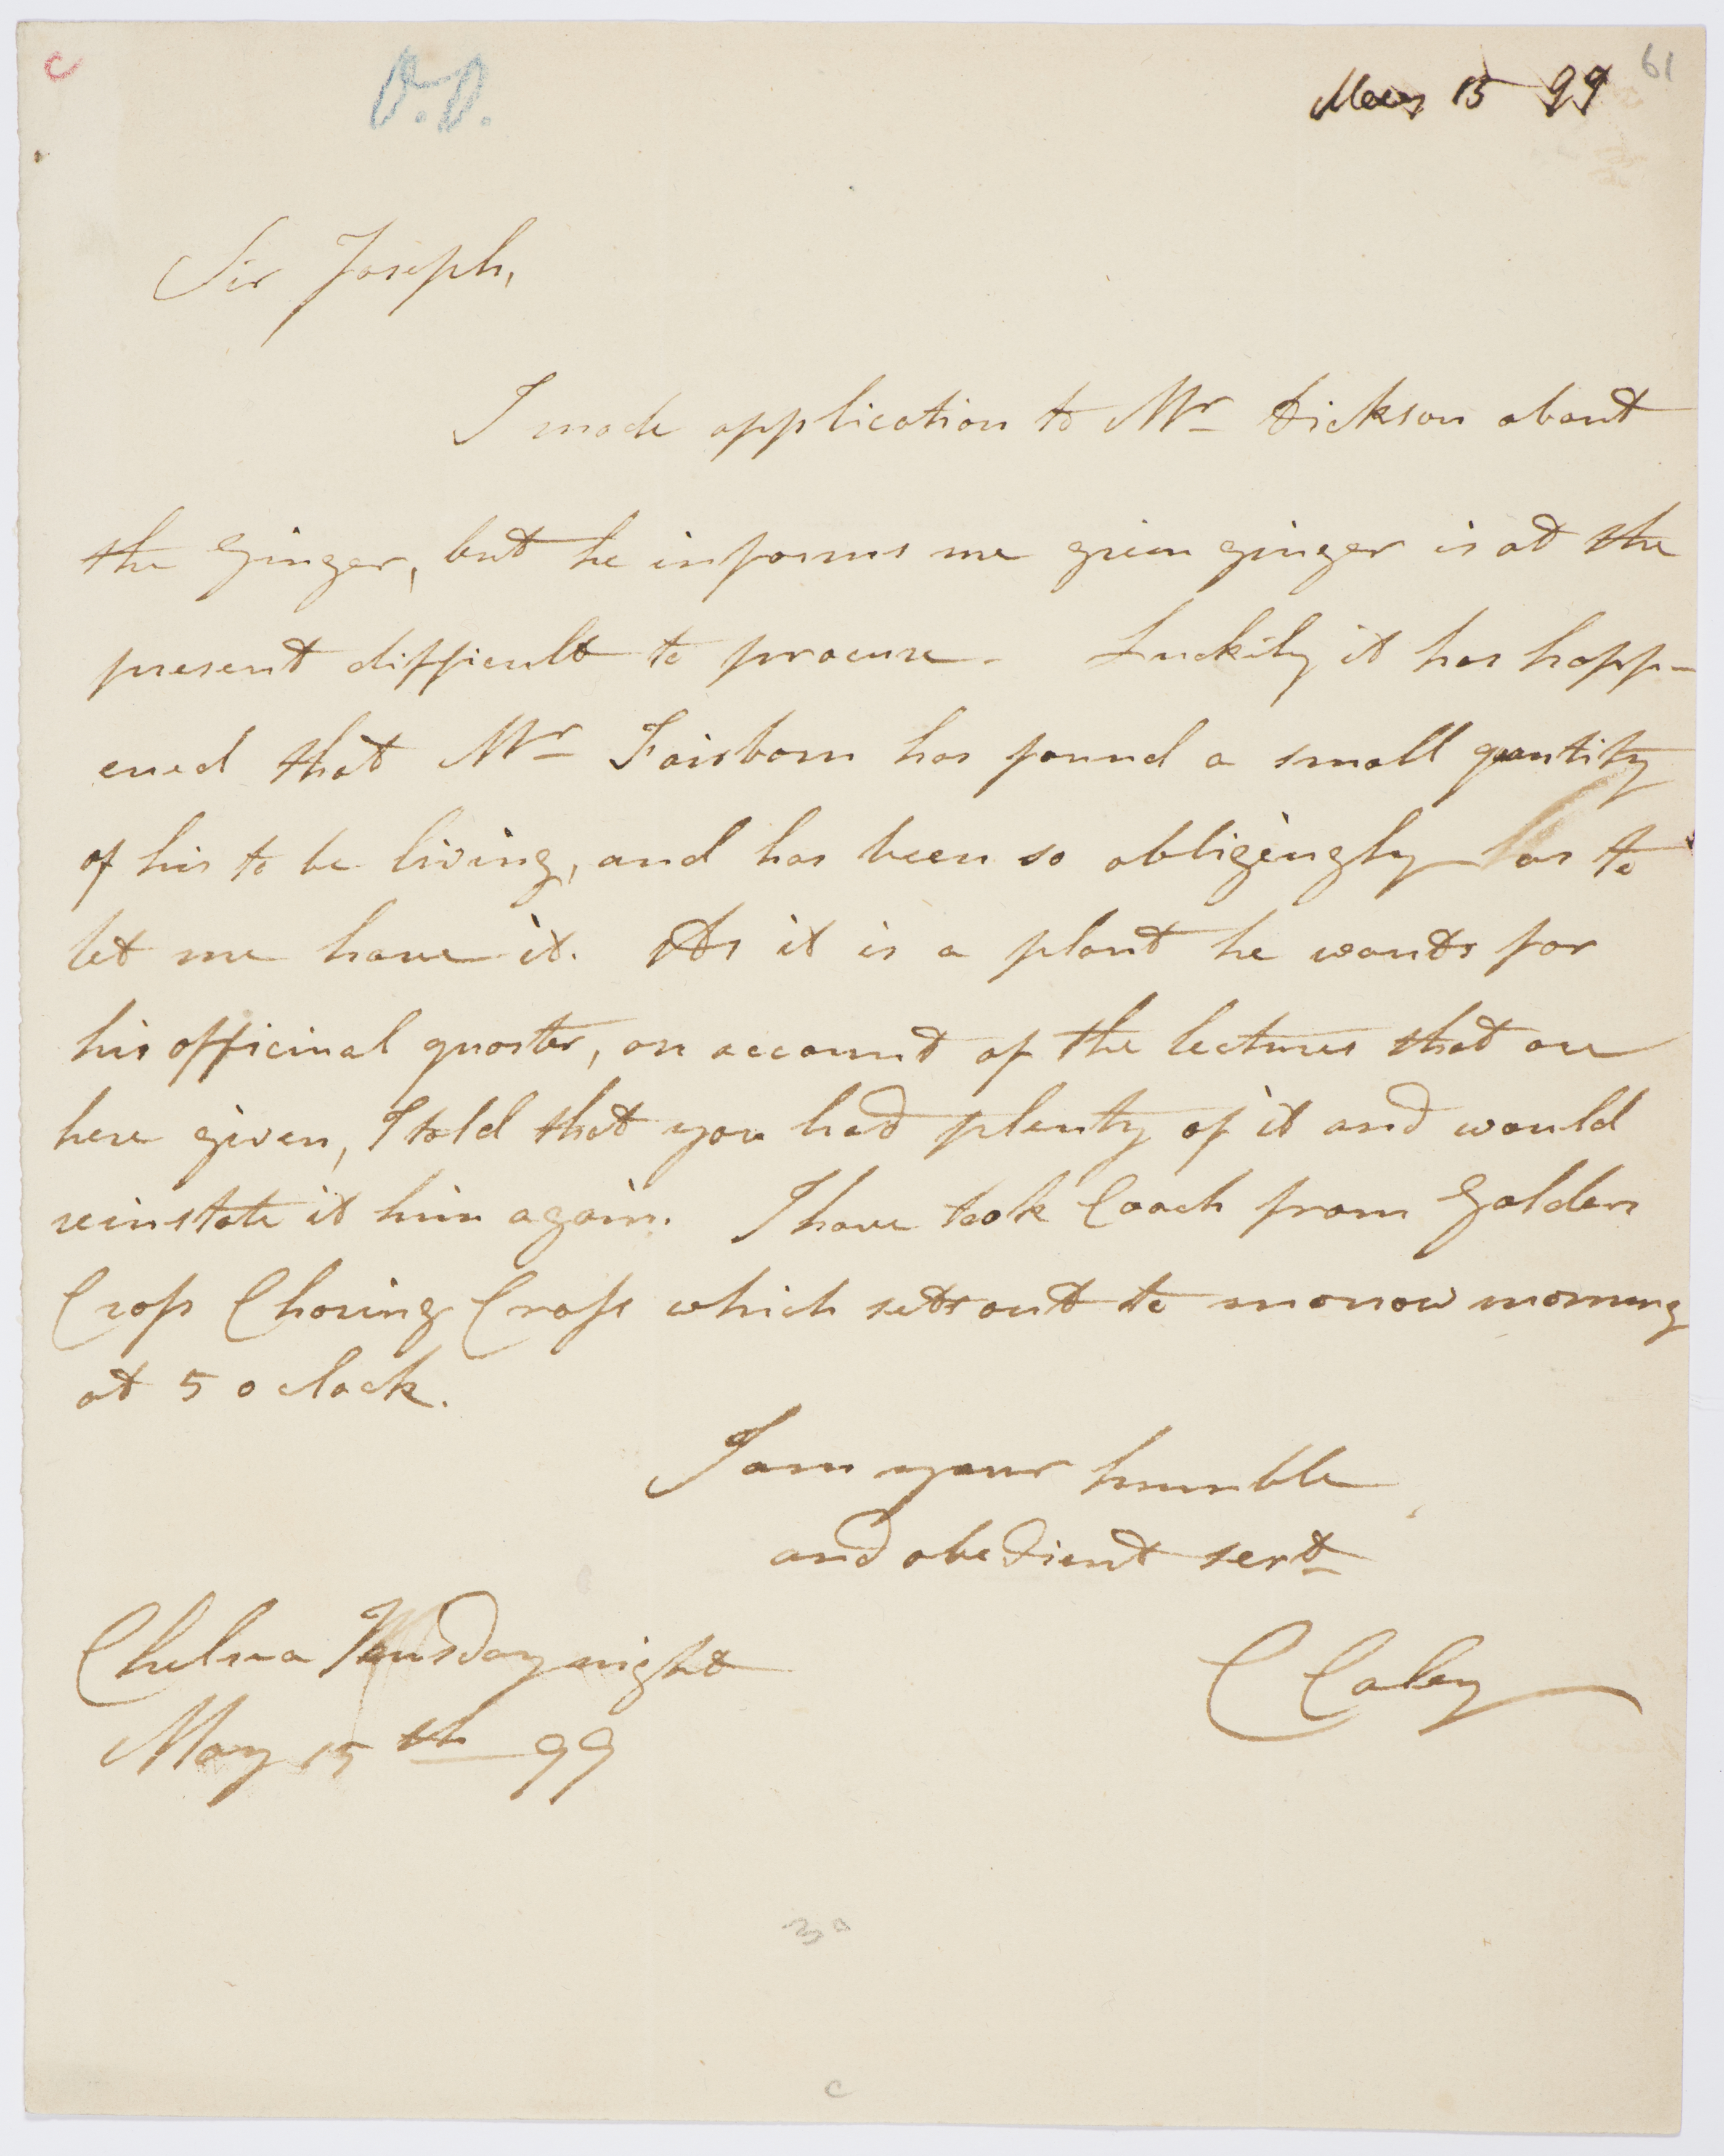 c
D.D.
May 15 99
61
Sir Joseph,
I made application to Mr Dickson about
the Ginger, but he informs me green ginger is at the
present difficult to procure. Luckily it has happ-
ened that Mr Fairborn has found a small quantity
of his to be living, and has been so obligingly as to
let me have it. As it is a plant he wants for
his officinal quarter, on account of the lectures that are
here given, I told that you had plenty of it and would
reinstate it him again. I have took Coach from Golden
Cross Charing Cross which sets out to morrow morning
at 5 o clock.
I am your humble
and obedient sert
Chelsea Wensday night
May 15th 99
C Caley
3a
c